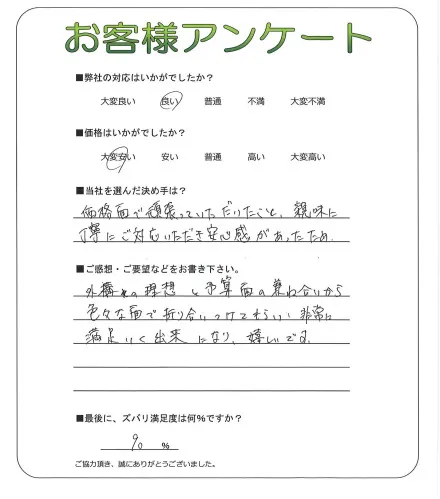 お客様アンケート
■弊社の対応はいかがでしたか？
大変良い 良い 普通 不満 大変不満
■価格はいかがでしたか？
大変安い 安い 普通 高い 大変高い
■当社を選んだ決め手は？
価格面で頑張っていただけたこと、親味に
丁寧にご対応いただき安心感があったため
■ご感想・ご要望などをお書き下さい。
外構の理想と予算面の兼ね合いから
色々な面で折り合いつけてもらい非常に
満足いく出来になり、嬉しいです
■最後に、ズバリ満足度は何%ですか？
90 %
ご協力頂き、誠にありがとうございました。